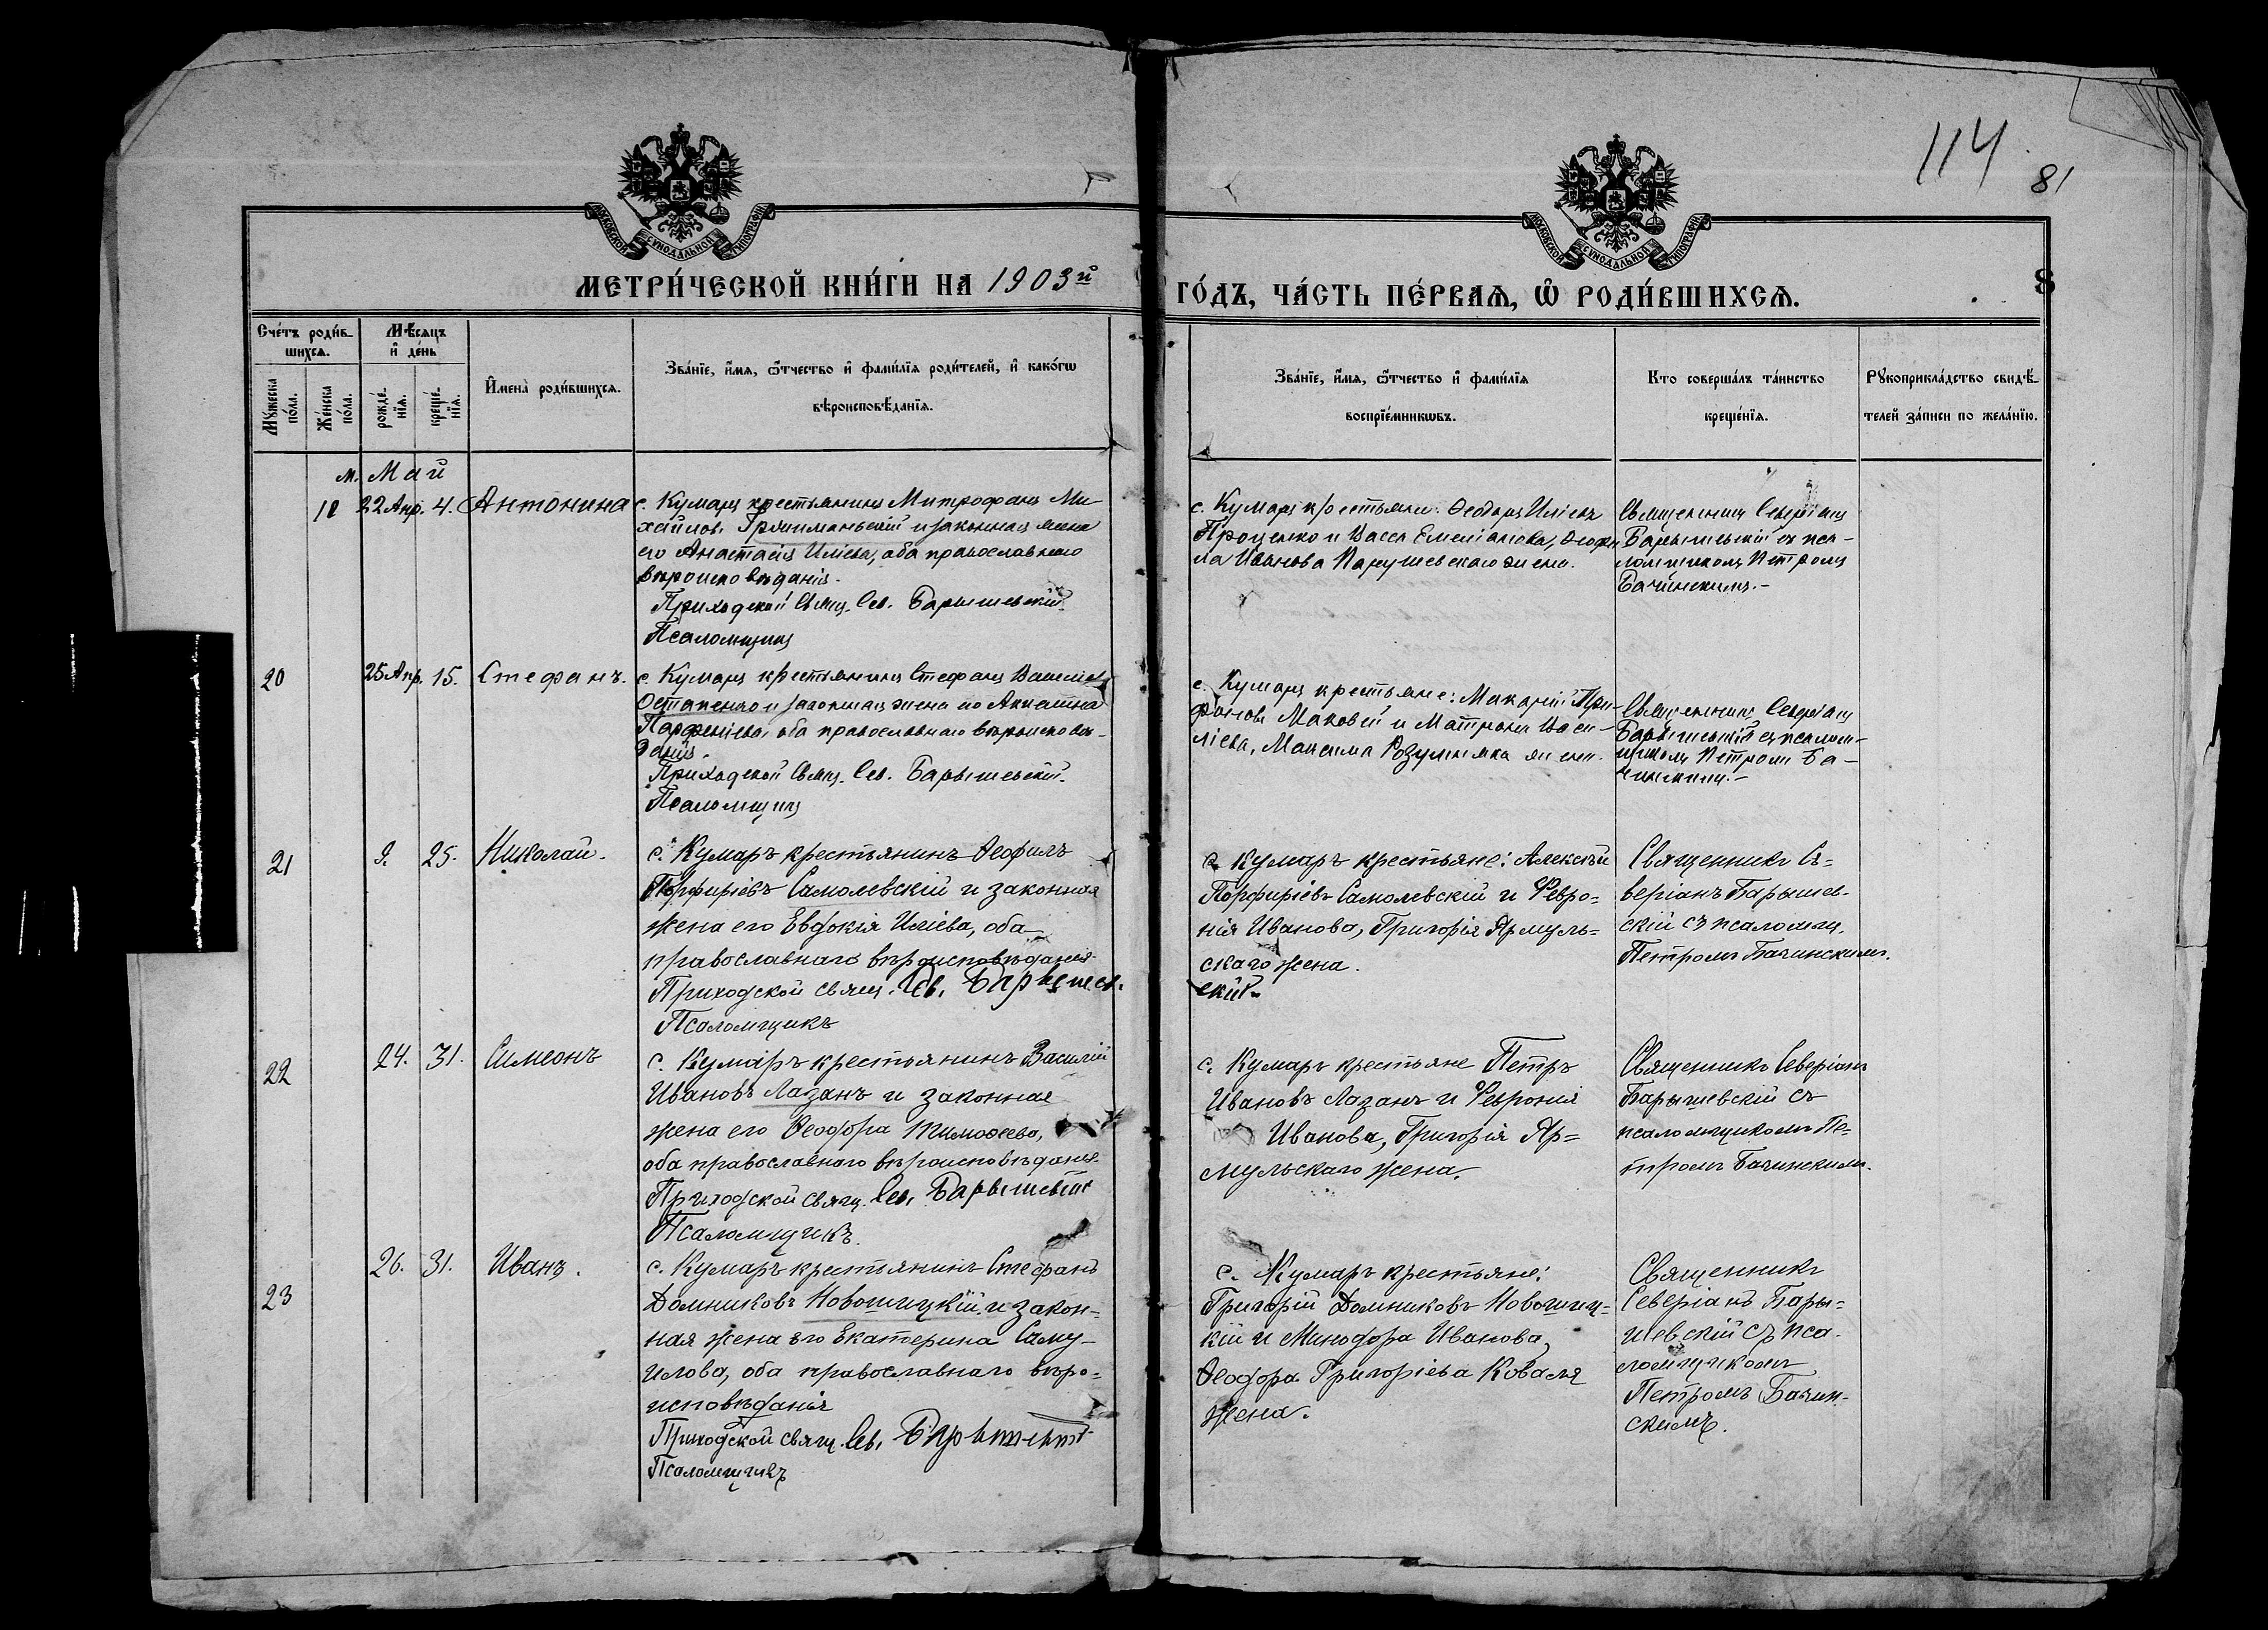 114
81
МОСКОВСКОЙ СѴНОДАЛЬНОЙ ТИПОГРАФІИ
МОСКОВСКОЙ СѴНОДАЛЬНОЙ ТИПОГРАФІИ
МЕТРИ́ЧЕСКОЙ КНИ́ГИ НА 1903й
ГО́ДЪ, ЧА́СТЬ ПЕ́РВАѦ, Ѡ҆ РОДИ́ВШИХСѦ.
8
Сче́тъ роди́в-
шихсѧ.
Мѣ́сѧцъ
и҆ де́нь
Мꙋ́жеска по́ла.
Же́нска по́ла.
рожде́-нїѧ.
креще́-нїѧ.
И҆мена̀ роди́вшихсѧ.
Зва́нїе, и҆́мѧ, ѻ҆́тчество и҆ фами́лїѧ роди́телей, и҆ како́гѡ
вѣроисповѣ́данїѧ.
Зва́нїе, и҆́мѧ, ѻ҆́тчество и҆ фами́лїѧ
воспрїе́мникѡвъ.
Кто̀ соверша́лъ та́инство
креще́нїѧ.
Рꙋкоприкла́дство свидѣ́-
телей за́писи по жела́нїю.
м. Май
18 22 Апр. 4. Антонина
с. Кумаръ крестьянинъ Митрофанъ Ми-
хаиловъ и законная жена
его Анастасія Иліева, оба православнаго
вѣроисповѣданія.
Приходской Свящ. Сев. Барышевскій.
Псаломщикъ
с. Кумаръ крестьяне: Ѳеодоръ Иліевъ
Проценко и Васса Емеліанова,
ла Иванова жена.
Священникъ Северіанъ
Барышевскій съ пса-
ломщикомъ Петромъ
Бачинскимъ.-
20 25 Апр. 15. Стефанъ.
с. Кумаръ крестьянинъ Стефанъ
Остапенко и законная жена его
Парѳеніева, оба православнаго вѣроисповѣ-
данія.
Приходской Свящ. Сев. Барышевскій.
Псаломщикъ
с. Кумаръ крестьяне: Макарій Три-
фоновъ Маковей и Матрона Васи-
ліева, Максима Розумняка жена.
Священникъ Северіанъ
Барышевскій съ псалом-
щикомъ Петромъ Ба-
чинскимъ.-
21 9. 25. Николай.
с. Кумаръ крестьянинъ Ѳеофилъ
Порфиріевъ Самолевскій и законная
жена его Евдокія Иліева, оба
православнаго вѣроисповѣданія.
Приходской свящ. Сев. Барышев-
Псаломщикъ
с. Кумаръ крестьяне: Алексѣй
Порфиріевъ Самолевскій и Февро=
нія Иванова, Григорія Ярмуль=
скаго жена.
скій.
Священникъ Се=
веріанъ Барышев-
скій съ псаломщ.
Петромъ Бачинскимъ.
22 24. 31. Симеонъ
с. Кумаръ крестьянинъ Василій
Ивановъ Лазанъ и законная
жена его Ѳеодора Тимоѳеева,
оба православнаго вѣроисповѣданія.
Приходской свящ. Сев. Барышевскій
Псаломщикъ.
с. Кумаръ крестьяне Петръ
Ивановъ Лазанъ и Февронія
Иванова, Григорія Яр=
мульскаго жена.
Священникъ Северіанъ
Барышевскій съ
псаломщикомъ Пе=
тромъ Бачинскимъ.
23 26. 31. Иванъ.
с. Кумаръ крестьянинъ Стефанъ
Домниковъ Новошицкій и закон=
ная жена его Екатерина Саму-
илова, оба православнаго вѣро=
исповѣданія
Приходской свящ. Сев. Барышевскій
Псаломщикъ
с. Кумаръ крестьяне:
Григорій Домниковъ Новошиц=
кій и Минодора Иванова,
Ѳеодора Григоріева Коваля
жена.
Священникъ
Северіанъ Бары=
шевскій съ пса-
ломщикомъ
Петромъ Бачин-
скимъ.